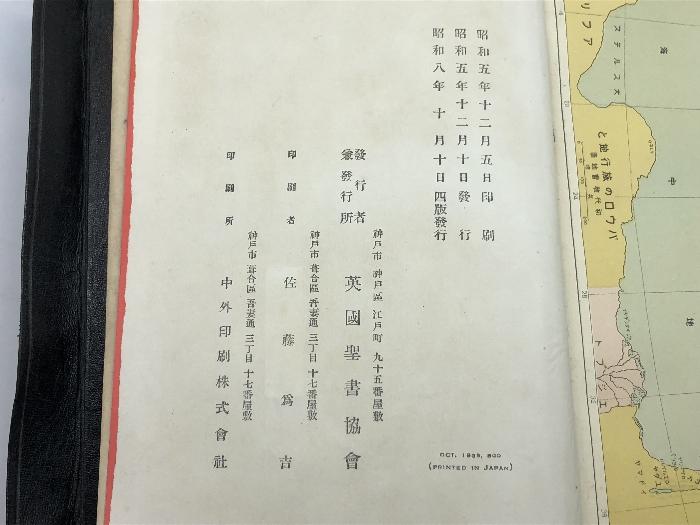 昭和五年十二月五日印刷
昭和五年十二月十日發行
昭和八年十月十日四版發行
發行者
兼發行所
神戸市神戸區江戸町九十五番屋敷
英國聖書協會
印刷者
神戸市葺合區吾妻通三丁目十七番屋敷
佐藤爲吉
印刷所
神戸市葺合區吾妻通三丁目十七番屋敷
中外印刷株式會社
OCT. 1933, 800
(PRINTED IN JAPAN)
パウロの旅行地と
アフリ
海
中
地
エジプト